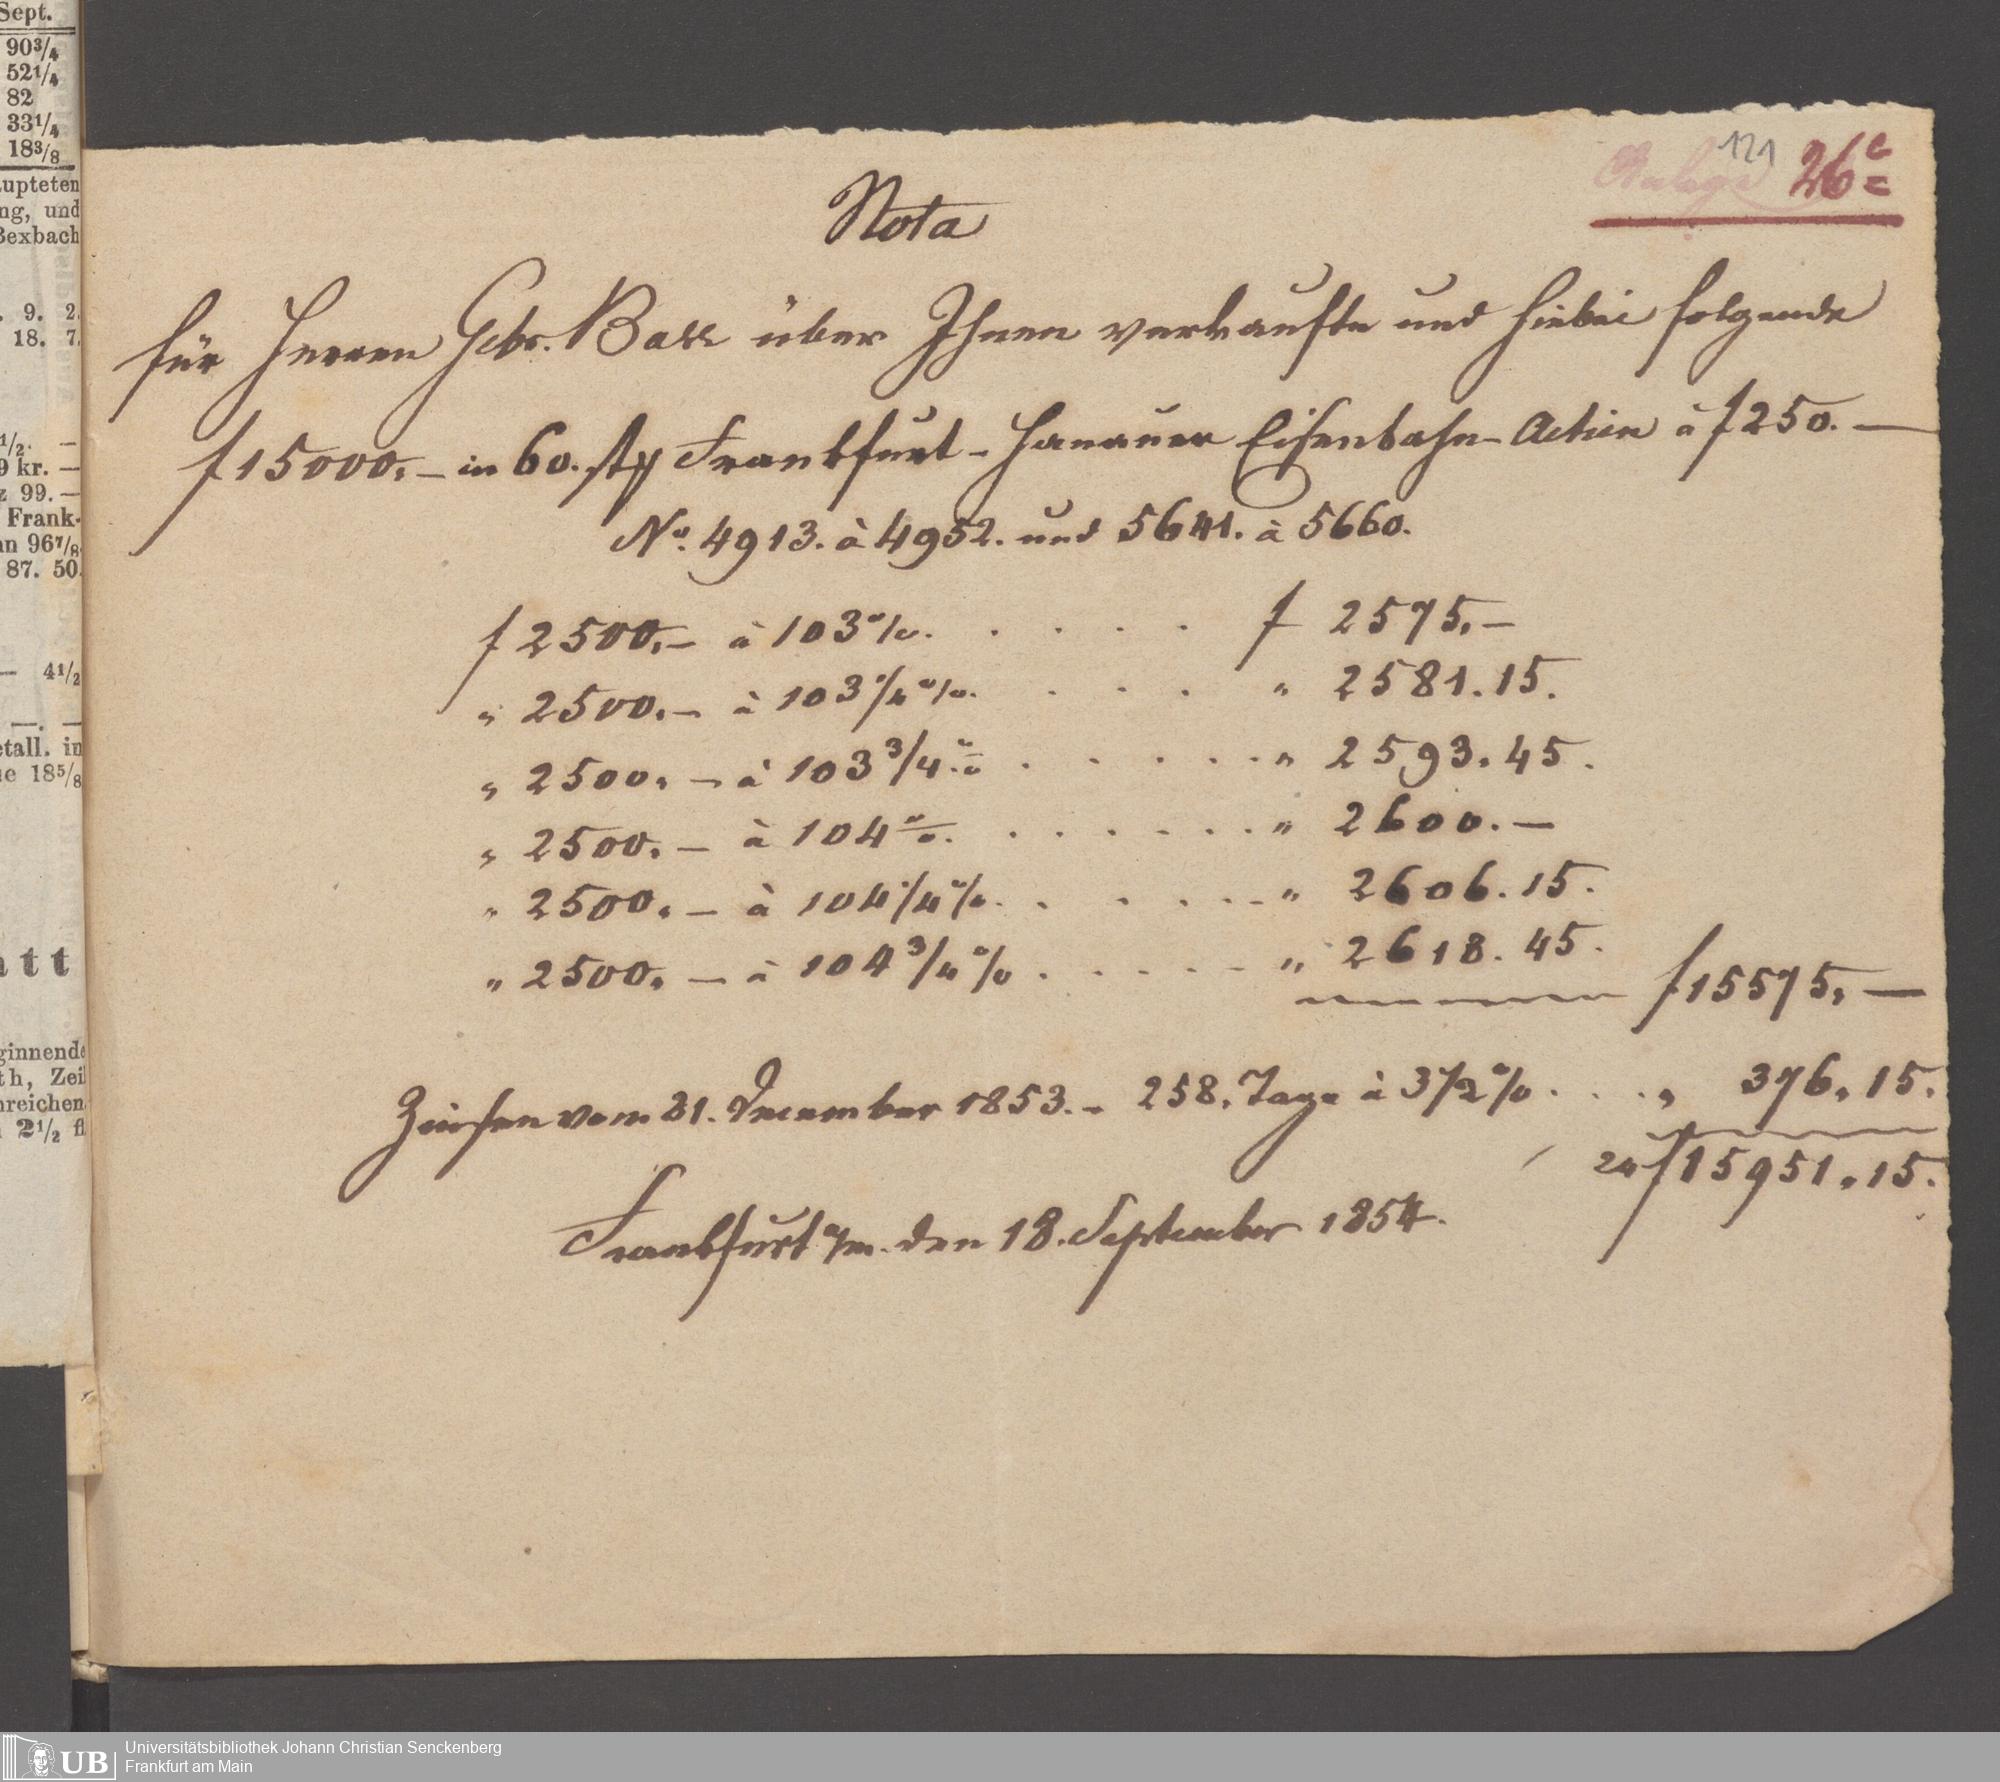 Sept.
90 3/4
52 1/4
82
33 1/4
18 3/8
upteten
ng, und
Bexbach
9. 2.
18. 7.
1/2. —
9 kr. —
z 99. —
Frank-
an 96 7/8
87. 50.
— 4 1/2
—. —
etall. in
ue 18 5/8
att
ginnende
th, Zeil
nreichen
2 1/2 fl
121
Anlage 26c
Nota
für Herren Gebr. Bass über Ihnen verkaufte und hiebei folgende
f 15000.— in 60. stk Frankfurt-Hanauer Eisenbahn-Actien à f 250.—
No. 4913. à 4952. und 5641. à 5660.
f 2500.— à 103 %. . . . . f 2575.—
" 2500.— à 103 1/4 %. . . . " 2581.15.
" 2500.— à 103 3/4 % . . . . . " 2593.45.
" 2500.— à 104 %. . . . . . " 2600.—
" 2500.— à 104 1/4 %. . . . . . " 2606.15.
" 2500.— à 104 3/4 % . . . . . " 2618.45.
f 15575.—
Zinsen vom 31. December 1853. - 258. Tage à 3 1/2 % . . . " 376.15.
24 f 15951.15.
Frankfurt a/m. den 18. September 1854.
UB
Universitätsbibliothek Johann Christian Senckenberg
Frankfurt am Main